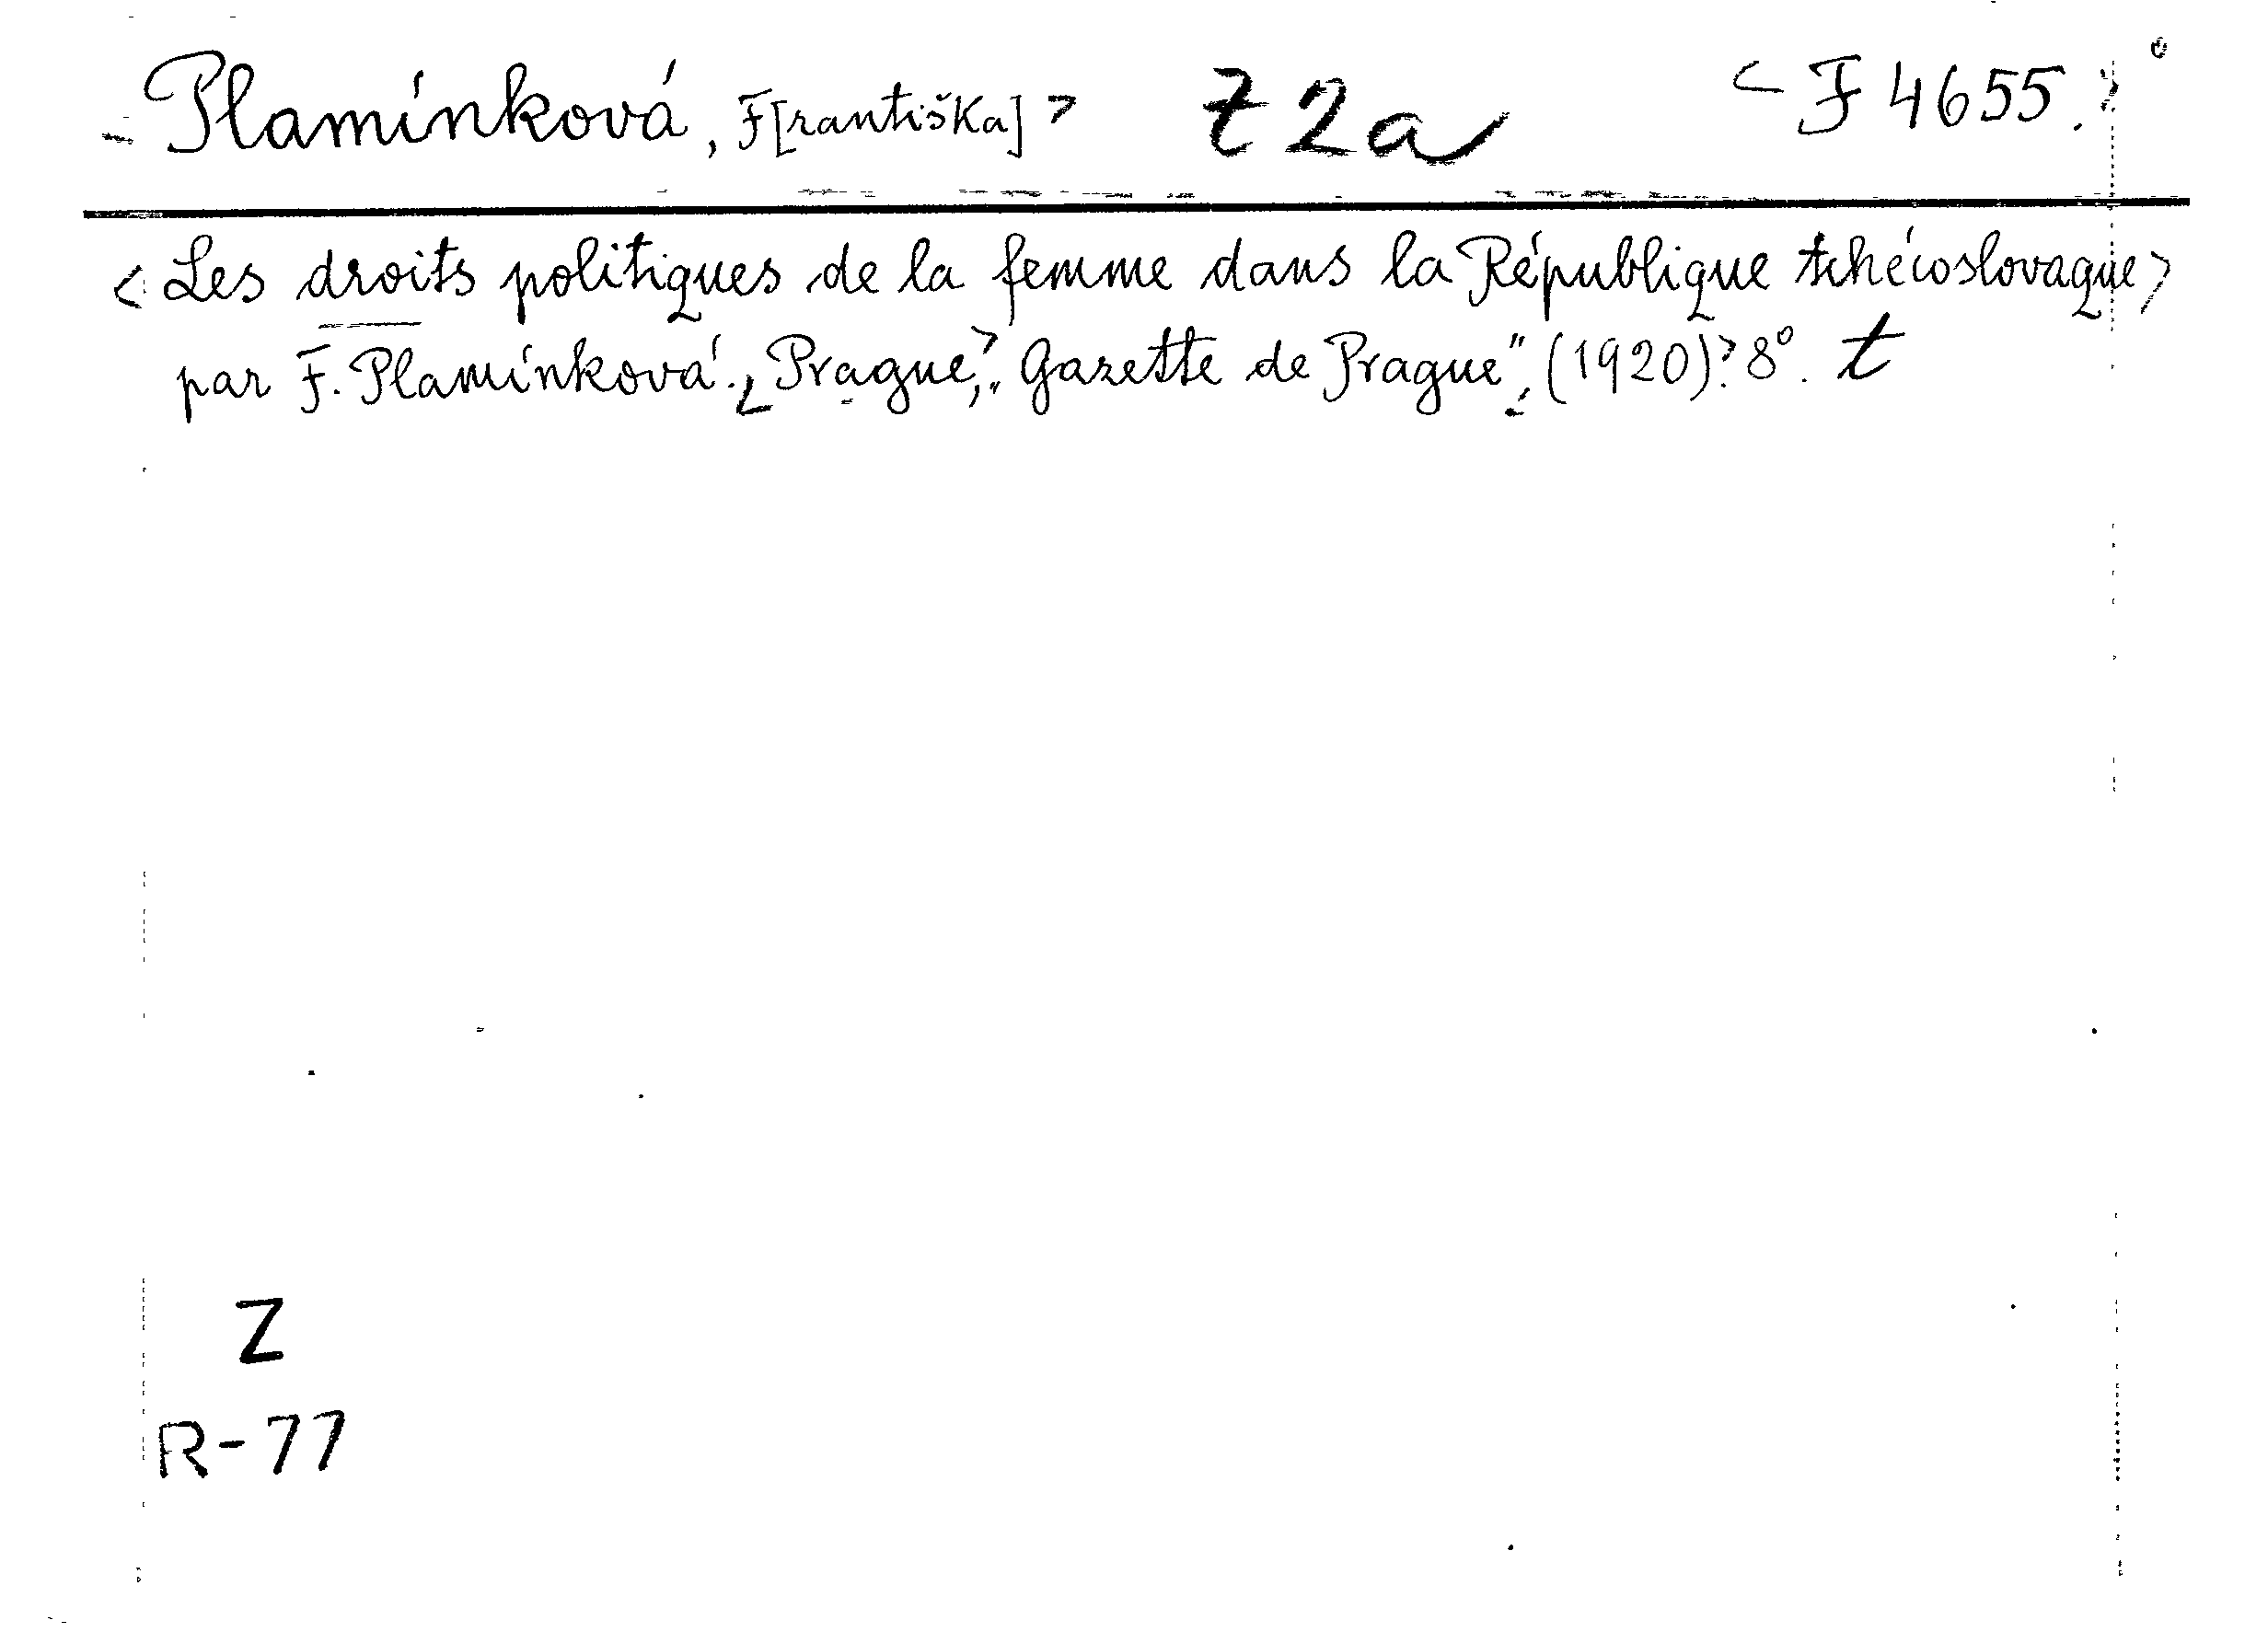 Plamínková, F[rantiška] > Z2a < F 4655.
< Les droits politiques de la femme dans la République tchécoslovaque >
par F. Plamínková. < Prague, > „Gazette de Prague", (1920). > 8°. t
Z
R-77